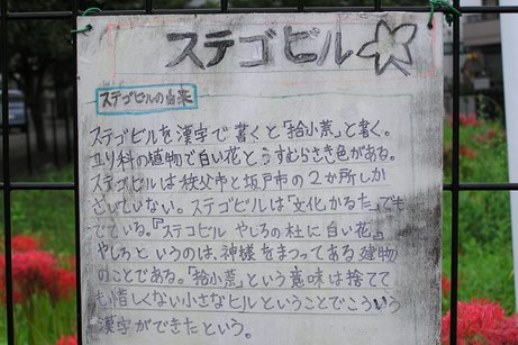 ステゴビル
ステゴビルの由来
ステゴビルを漢字で書くと「捨小蒜」と書く。
ユリ科の植物で白い花とうすむらさき色がある。
ステゴビルは秩父市と坂戸市の2か所しか
さいていない。ステゴビルは「文化かるた」でも
でている。『ステコビル やしろの杜に白い花』
やしろと いうのは、神様をまつってある建物
のことである。「捨小蒜」という意味は捨てて
も惜しくない小さなヒルということでこういう
漢字ができたという。